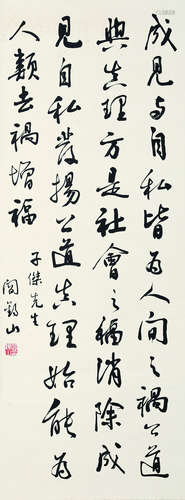 成見与自私皆為人間之禍公道
與真理方是社會之福消除成
見自私發揚公道真理始能為
人類去禍增福
子傑先生
閻錫山